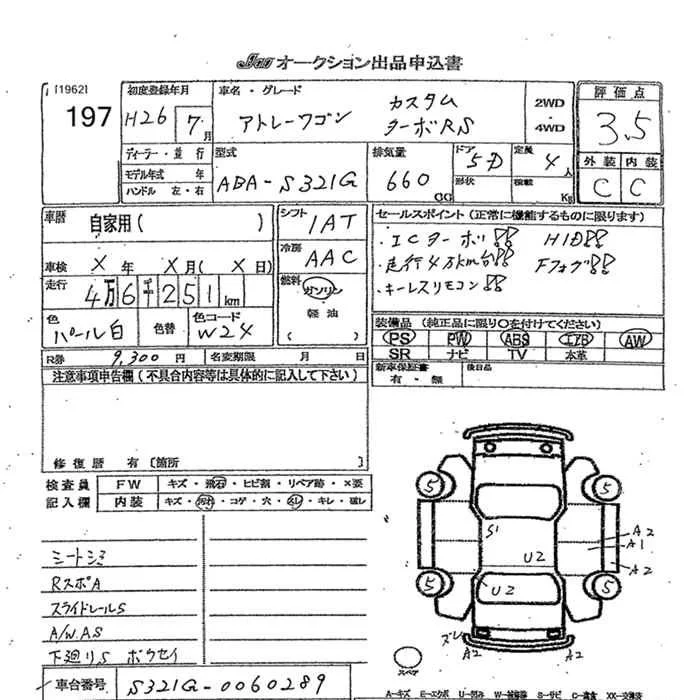 JAA オークション出品申込書
[1962]
197
初度登録年月
H26 7 月
車名・グレード
アトレーワゴン カスタム ターボRS
2WD
4WD
評価点
3.5
外装 内装
C C
ディーラー・並行
モデル年式 年
ハンドル 左・右
型式
ABA-S321G
排気量
660 CC
ドア 5D
形状
定員 4人
積載 Kg
車歴 自家用( )
車検 X 年 X 月( X 日)
走行 4万6千251km
色 パール白 色替 色コード W24
シフト IAT
冷房 AAC
燃料 ガソリン
軽油
( )
セールスポイント(正常に機能するものに限ります)
・ICターボ!! HID!!
・走行4万km台!! Fフォグ!!
・キーレスリモコン!!
装備品 (純正品に限り○を付けてください)
PS PW ABS エアB AW
SR ナビ TV 本革
R券 9,300 円 名変期限 月 日
新車保証書 有・無
後日品
注意事項申告欄(不具合内容等は具体的に記入して下さい)
修復歴 有 〔箇所 〕
検査員記入欄
FW キズ・飛石・ヒビ割・リペア跡・×要
内装 キズ・汚れ・コゲ・穴・スレ・キレ・破レ
シートシミ
RスポA
スライドレールS
A/W.AS
下廻りS ボウセイ
車台番号 S321G-0060289
5 5
S1 U2
A2
A1
A2
5 5
U2
ズレ
A2 A2
スペア
A-キズ E-エクボ U-凹み W-補修跡 S-サビ C-腐食 XX-交換済